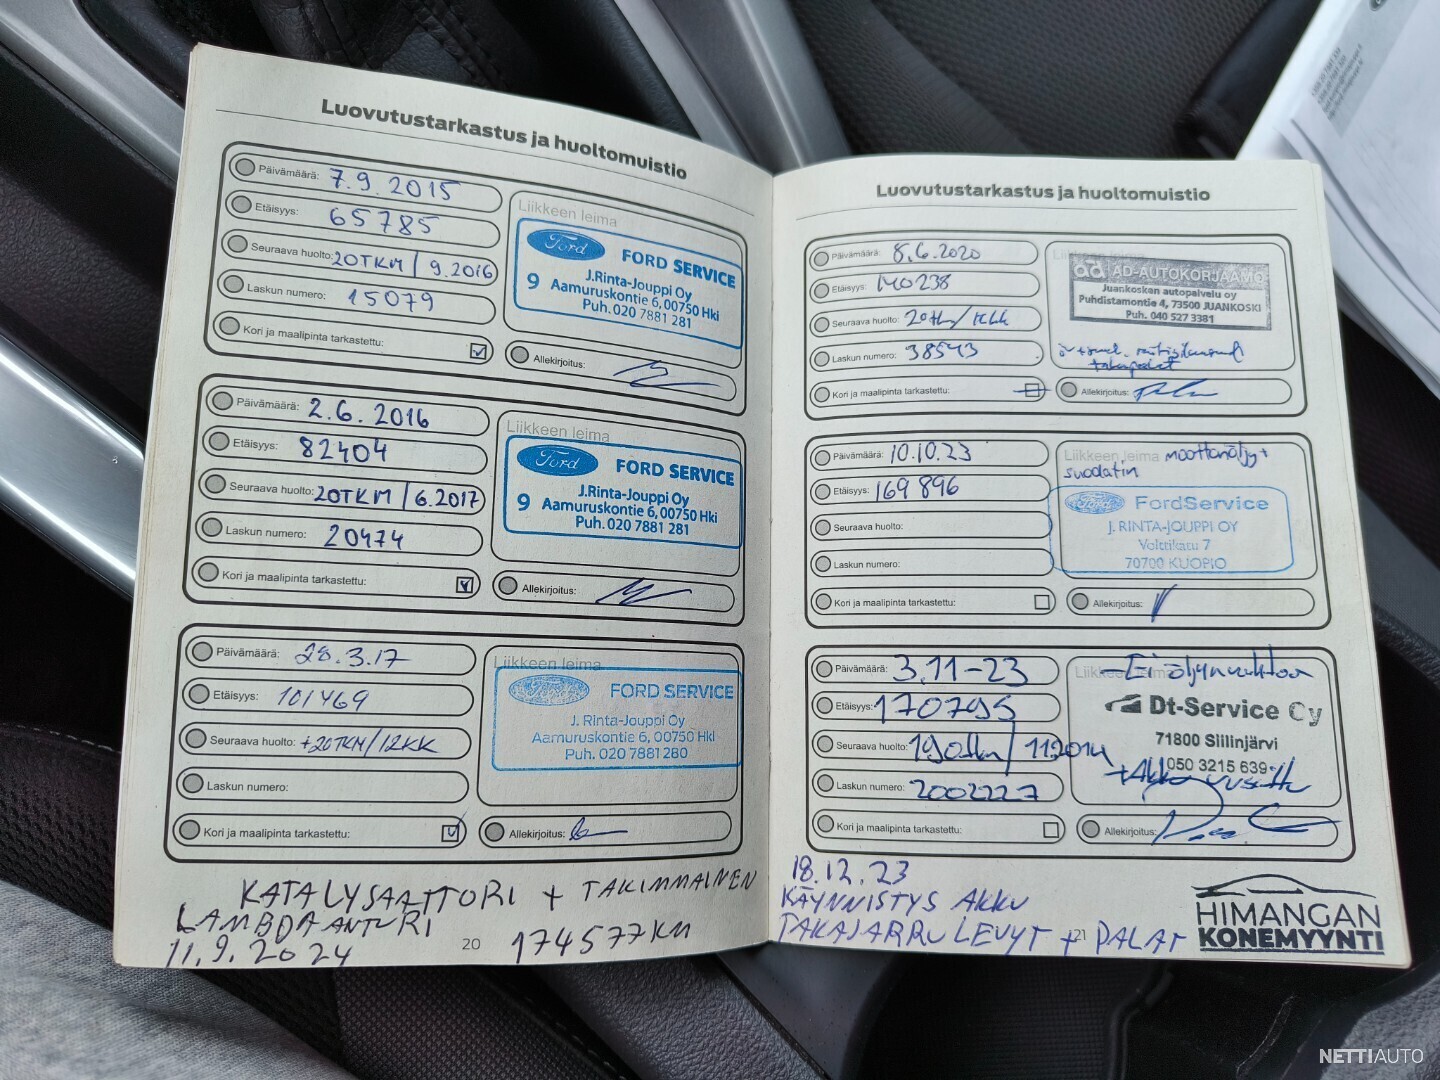 Luovutustarkastus ja huoltomuistio
Päivämäärä: 7.9.2015
Etäisyys: 65785
Seuraava huolto: 20TKM / 9.2016
Laskun numero: 15079
Kori ja maalipinta tarkastettu:
Liikkeen leima
Ford FORD SERVICE
9 J.Rinta-Jouppi Oy
Aamuruskontie 6, 00750 Hki
Puh. 020 7881 281
Allekirjoitus:
Päivämäärä: 2.6.2016
Etäisyys: 82404
Seuraava huolto: 20TKM / 6.2017
Laskun numero: 20474
Kori ja maalipinta tarkastettu:
Liikkeen leima
Ford FORD SERVICE
9 J.Rinta-Jouppi Oy
Aamuruskontie 6, 00750 Hki
Puh. 020 7881 281
Allekirjoitus:
Päivämäärä: 28.3.17
Etäisyys: 101469
Seuraava huolto: +20TKM/12KK
Laskun numero:
Kori ja maalipinta tarkastettu:
Liikkeen leima
Ford FORD SERVICE
J. Rinta-Jouppi Oy
Aamuruskontie 6, 00750 Hki
Puh. 020 7881 280
Allekirjoitus:
KATALYSAATTORI + TAKIMMAINEN
LAMBDA ANTURI
11.9.2024 174577KM
20
Luovutustarkastus ja huoltomuistio
Päivämäärä: 8.6.2020
Etäisyys: 140238
Seuraava huolto:
Laskun numero: 38543
Kori ja maalipinta tarkastettu:
Liikkeen leima
ad AD-AUTOKORJAAMO
Juankosken autopalvelu oy
Puhdistamontie 4, 73500 JUANKOSKI
Puh. 040 527 3381
takapalat
Allekirjoitus:
Päivämäärä: 10.10.23
Etäisyys: 169896
Seuraava huolto:
Laskun numero:
Kori ja maalipinta tarkastettu:
Liikkeen leima moottoriöljy+
suodatin
Ford FordService
J. RINTA-JOUPPI OY
Volttikatu 7
70700 KUOPIO
Allekirjoitus:
Päivämäärä: 3.11-23
Etäisyys: 170795
Seuraava huolto: 190tkm / 11.2024
Laskun numero: 2002227
Kori ja maalipinta tarkastettu:
Liikkeen leima
- Ei öljynvaihtoa
Dt-Service Oy
71800 Siilinjärvi
050 3215 639
+Akku
Allekirjoitus:
18.12.23
KÄYNNISTYS AKKU
TAKAJARRU LEVYT + PALAT
21
HIMANGAN
KONEMYYNTI
NETTIAUTO